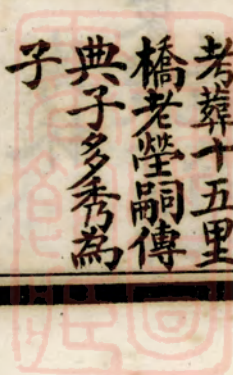 考葬十五里
橋老塋嗣傳
典子多秀為
子